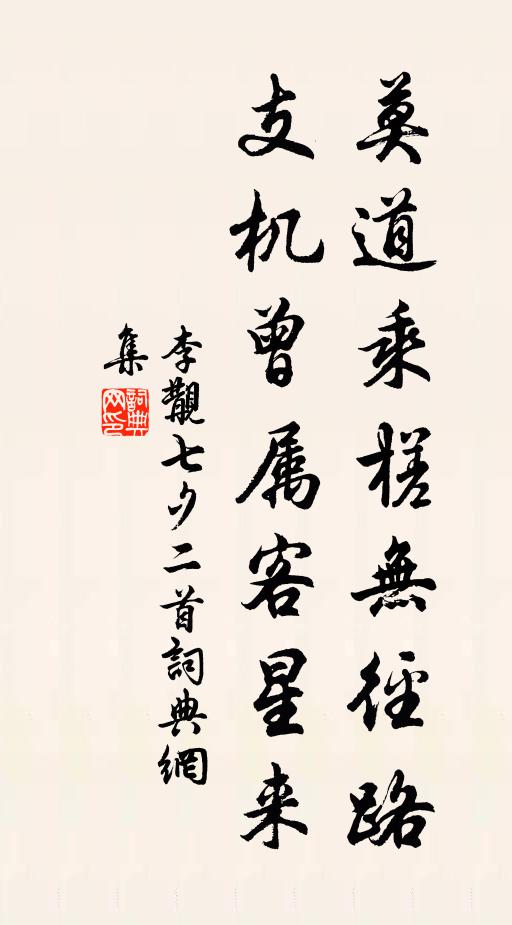 莫道乘槎無徑路
支机曾属客星来
李覯七夕二首詞典網
集
詞典网印